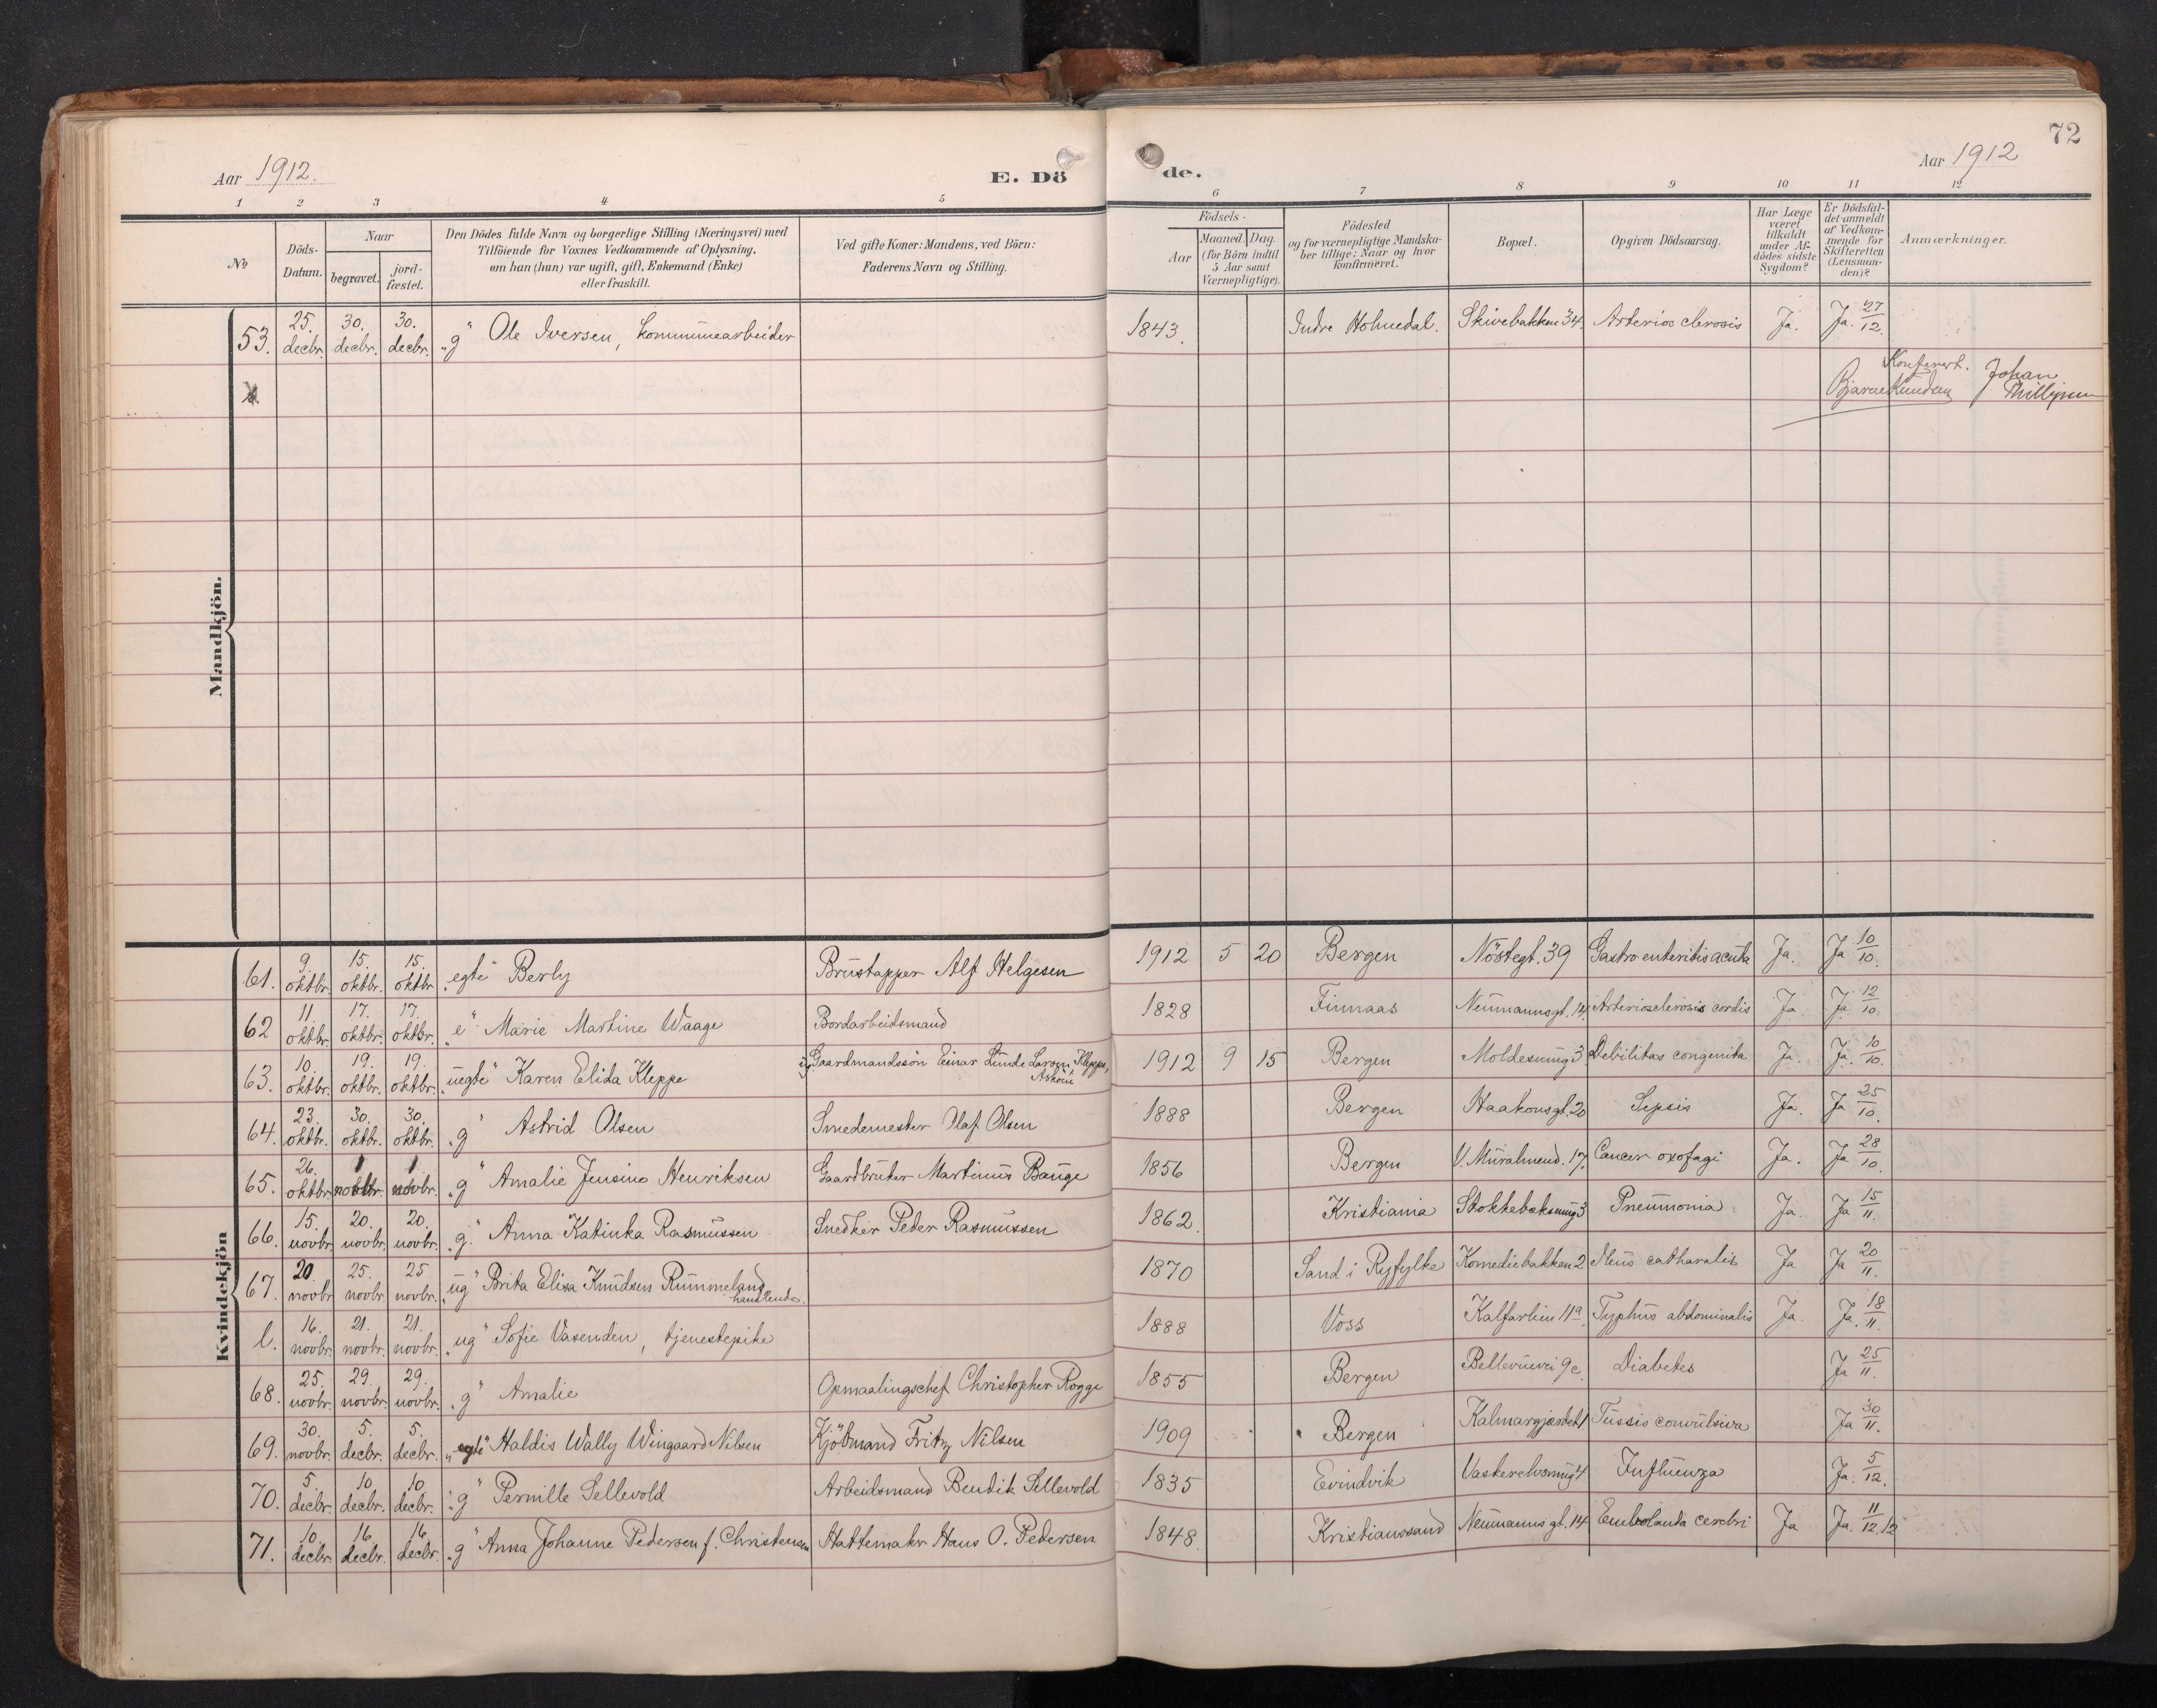 72
Aar 1912.
E. Dö de.
Aar 1912
1 2 3 4 5 6 7 8 9 10 11 12
№
Döds-Datum.
Naar
begravet.
jord-fæstet.
Den Dödes fulde Navn og borgerlige Stilling (Næringsvei) med
Tilföiende for Voxnes Vedkommende af Oplysning,
om han (hun) var ugift, gift, Enkemand (Enke)
eller fraskilt.
Ved gifte Koner: Mandens, ved Börn:
Faderens Navn og Stilling.
Födsels-
Aar
Maaned. Dag.
(for Börn indtil
5 Aar samt
Værnepligtige).
Födested
og for værnepligtige Mandska-
ber tillige: Naar og hvor
konfirmeret.
Bopæl.
Opgiven Dödsaarsag.
Har Læge
været
tilkaldt
under Af-
dödes sidste
Sygdom?
Er Dödsfal-
det anmeldt
af Vedkom-
mende for
Skifteretten
(Lensman-
den)?
Anmærkninger.
Mandkjön.
53. 25. decbr. 30. decbr. 30. decbr. "g" Ole Iversen, kommunearbeider 1843. Indre Holmedal. Skivebakken 34. Arterios clerosis Ja. Ja. 27/12.
Konferert.
Bjarne Knudsen Johan Phillipsen
Kvindekjön
61. 9. oktbr. 15. oktbr. 15. oktbr. "egte" Berly Brustapper Alf Helgesen 1912 5 20 Bergen Nöstegt. 39 Gastro enteritis acuta Ja. Ja 10/10.
62 11. oktbr. 17. oktbr. 17. oktbr. "e" Marie Martine Waage Bordarbeidsmand 1828 Finnaas Neumannsgt. 14. Arteriosclerosis cordis Ja Ja 12/10.
63. 10. oktbr. 19. oktbr. 19. oktbr. "uegte" Karen Elida Kleppe Gaardmandssön Einar Lunde Larsen Kleppe, Asköin 1912 9 15 Bergen Moldesmug 3 Debilitas congenita Ja. Ja. 10/10.
64. 23. oktbr. 30. oktbr. 30. oktbr. "g" Astrid Olsen Smedemester Olaf Olsen 1888 Bergen Haakonsgt. 20 Sepsis Ja. Ja 25/10.
65. 26. oktbr. 1 novbr. 1 novbr. "g" Amalie Jensine Henriksen Gaardbruker Martinus Bauge 1856 Bergen V. Muralmend. 17. Cancer oxofagi Ja. Ja 28/10.
66. 15. novbr. 20. novbr. 20. novbr. "g" Anna Katinka Rasmussen Snedker Peder Rasmussen 1862. Kristiania Stokkebæksmug 3 Pneumonia Ja. Ja 15/11.
67. 20. novbr. 25. novbr. 25 novbr. "ug" Brita Elisa Knudsen Rummeland handlende. 1870 Sand i Ryfylke Komediebakken 2 Ileus catharalis Ja Ja 20/11.
l. 16. novbr. 21. novbr. 21. novbr. "ug" Sofie Vasenden, tjenestepike 1888 Voss Kalfarlien 11a Typhus abdominalis Ja. Ja. 18/11.
68. 25. novbr. 29. novbr. 29. novbr. "g" Amalie Opmaalingschef Christopher Rogge 1855 Bergen Bellevuevei 9c. Diabetes Ja 25/11.
69. 30. novbr. 5. decbr. 5. decbr. "egte" Haldis Wally Wingaard Nilsen Kjöbmand Fritz Nilsen 1909 Bergen Kalmargjærdet 1 Tussis convulsiva Ja 30/11.
70. 5. decbr. 10. decbr. 10. decbr. "g" Pernille Sellevold Arbeidsmand Bendik Sellevold 1835 Evindvik Vaskerelvsmug 4 Influenza Ja. 5/12.
71. 10. decbr. 16. decbr. 16. decbr. "g" Anna Johanne Pedersen f. Christensen Hattemaker Hans O. Pedersen 1848. Kristianssand Neumannsgt. 14 cerebri Ja Ja. 11/12.12